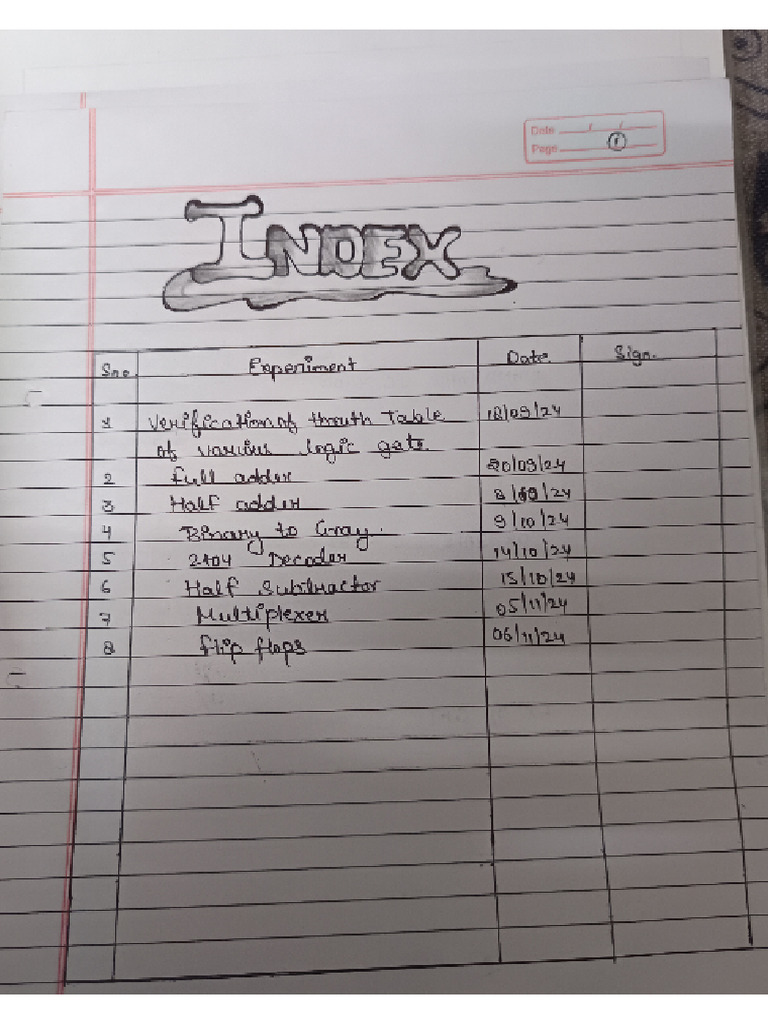 Date / /
Page 1
INDEX
Sno. Experiment Date Sign.
1 Verification of thruth Table 18/09/24
of various logic gate.
2 full adder 20/09/24
3 Half adder 8/10/24
4 Binary to Gray. 9/10/24
5 2to4 Decoder 14/10/24
6 Half Subtractor 15/10/24
7 Multiplexer 05/11/24
8 flip flops 06/11/24